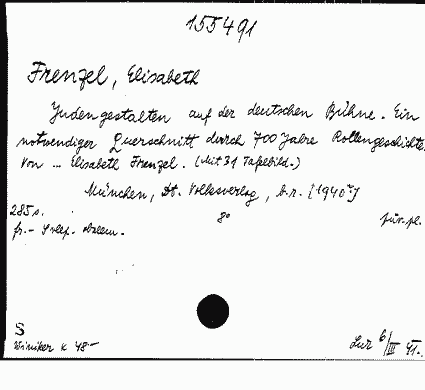 155491
Frenzel, Elisabeth
Judengestalten auf der deutschen Bühne. Ein
notwendiger Querschnitt durch 700 Jahre Rollengeschichte.
Von ... Elisabeth Frenzel. (Mit 31 Tafelbild.)
München, Dt. Volksverlag, b.r. [1940?]
285 s. 8° für. pl.
fr.-
S
Winiker K 48-
6/III 41.